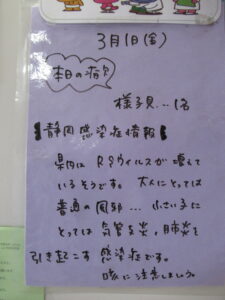 3月1日(金)
本日の病欠
様子見…1名
【静岡感染症情報】
県内はRSウイルスが増えて
いるそうです。大人にとっては
普通の風邪… 小さい子に
とっては気管支炎,肺炎を
引き起こす感染症です。
咳に注意しましょう。